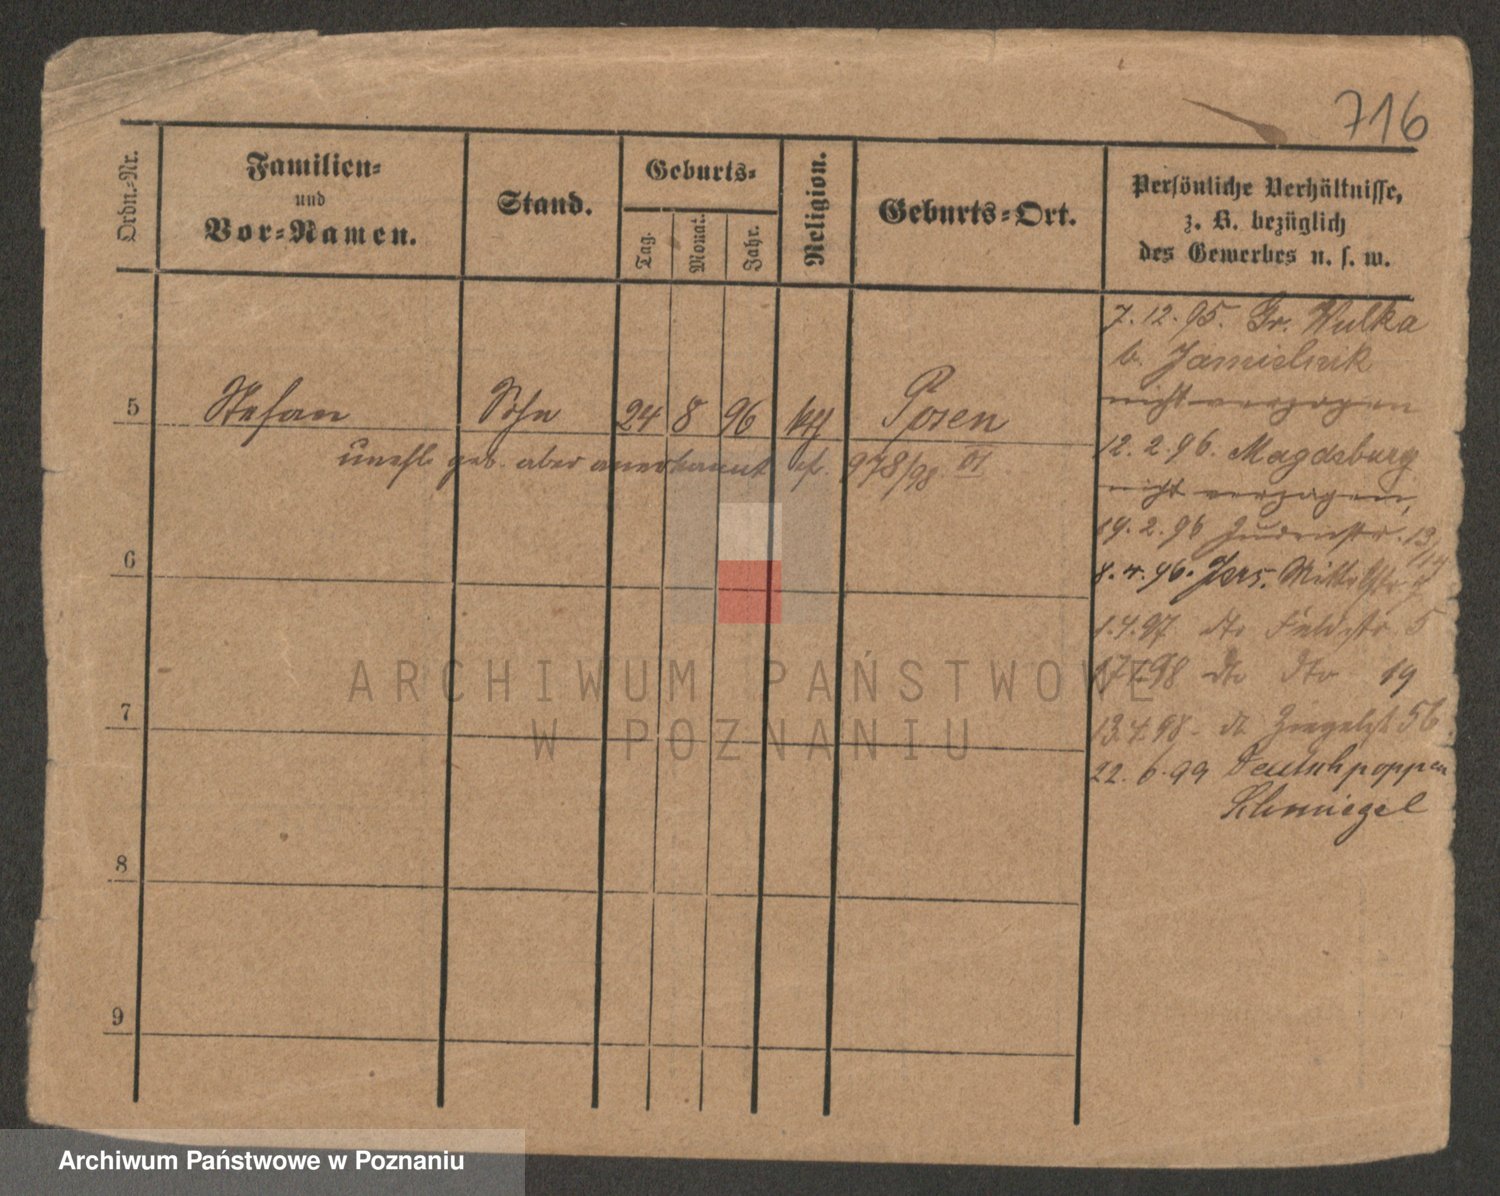 716
Ordn.-Nr.
Familien-
und
Vor-Namen.
Stand.
Geburts-
Tag.
Monat.
Jahr.
Religion.
Geburts-Ort.
Persönliche Verhältnisse,
z. B. bezüglich
des Gewerbes u. s. w.
7.12.95. Gr. Wulka
b. Jamielnik
nicht verzogen
5 Stefan Sohn 24 8 96 kth Posen
unehl. geb. aber anerkannt cf. 978/98 VI
12.2.96. Magdeburg
nicht verzogen,
19.2.96 Judenstr. 13/14
8.4.96. Jers. Mittelstr 7
1.4.97 dto Feldstr. 5
dto dto 19
13.4.98 - dt Ziegelst 5b
22.6.99 Deutschpoppen
Schmiegel
6
7
8
9
ARCHIWUM PAŃSTWOWE
W POZNANIU
Archiwum Państwowe w Poznaniu